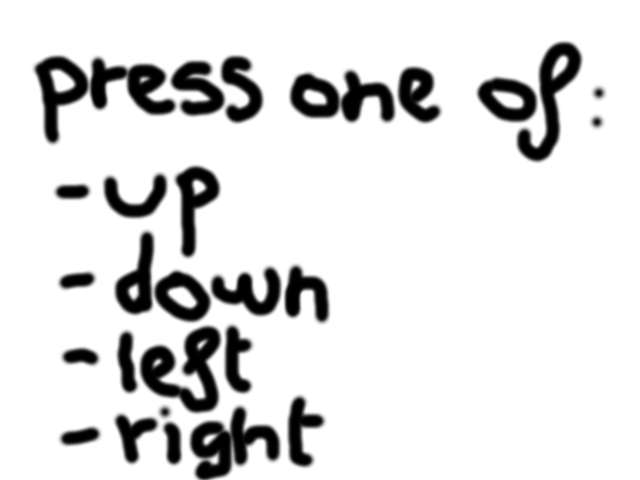 press one of:
- up
- down
- left
- right